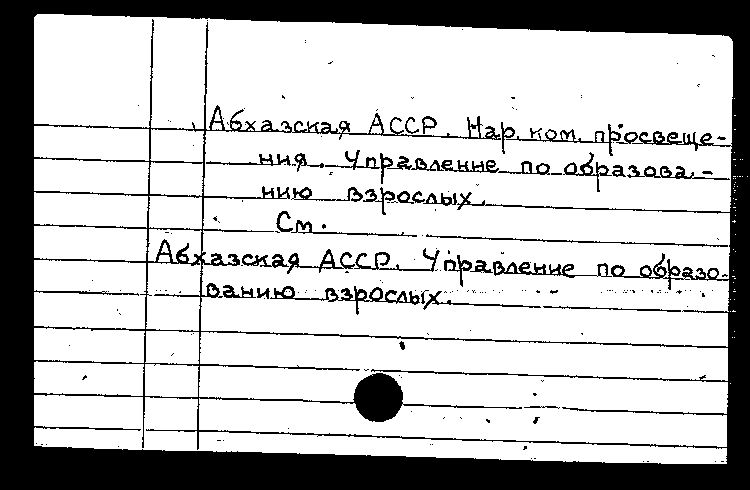 Абхазская АССР. Нар. ком. просвеще-
ния. Управление по образова-
нию взрослых.
См.
Абхазская АССР. Управление по образо-
ванию взрослых.